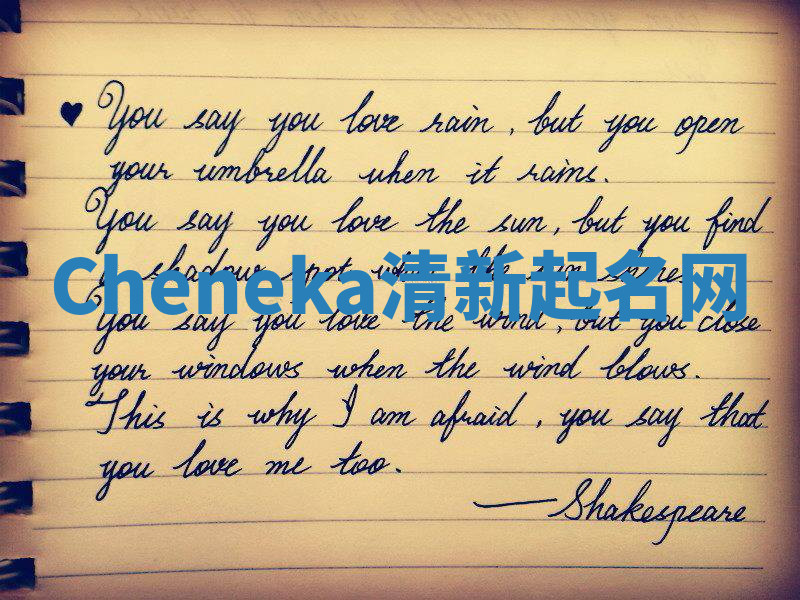 ♥ You say you love rain, but you open
your umbrella when it rains.
You say you love the sun, but you find
a shadow spot when the sun shines.
Cheneka清新起名网
You say you love the wind, but you close
your windows when the wind blows.
This is why I am afraid, you say that
you love me too.
—Shakespeare